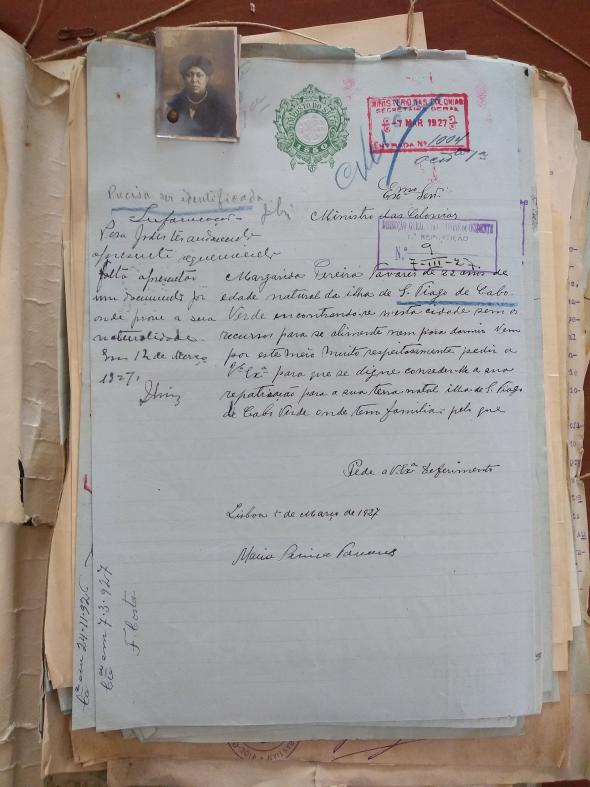 MINISTERIO DAS COLONIAS
SECRETARIA GERAL
-7 MAR 1927
ENTRADA Nº 1004
Precisa ser identificada
Exmo Senr.
Ministro das Colonias
DIRECÇÃO GERAL
REPARTIÇÃO
N.º 9
7-III-27
Informação
apresenta
falta apresentar
um documento por
onde prove a sua
naturalidade.
Em 12 de Março
1927,
Margarida Pereira Tavares de 22 anos de
edade natural da ilha de S. Tiago de Cabo
Verde encontrando-se nesta cidade sem os
recursos para se alimentar nem para dormir vem
por este meio muito respeitosamente pedir a
V. Exª para que se digne conseder-lhe a sua
repatriação para a sua terra natal ilha de S. Tiago
de Cabo Verde onde tem familia: pelo que
Pede a V. Exª deferimento
Lisboa 5 de Março de 1927
Maria Tavares
em 24-11-926
em 7.3.927
F. Costa